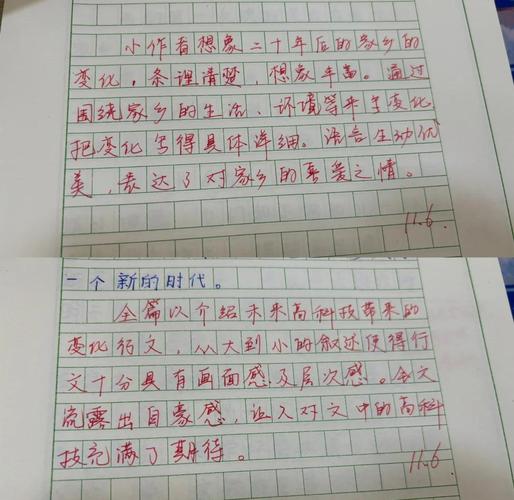 小作者想象二十年后的家乡的
变化，条理清楚，想象丰富。通过
围绕家乡的生活、环境等来写变化
把变化写得具体详细。语言生动优
美，表达了对家乡的喜爱之情。
11.6.
一个新的时代。
全篇以介绍未来高科技带来的
变化行文，从大到小的叙述使得行
文十分具有画面感及层次感。全文
流露出自豪感，让人对文中的高科
技充满了期待。
11.6